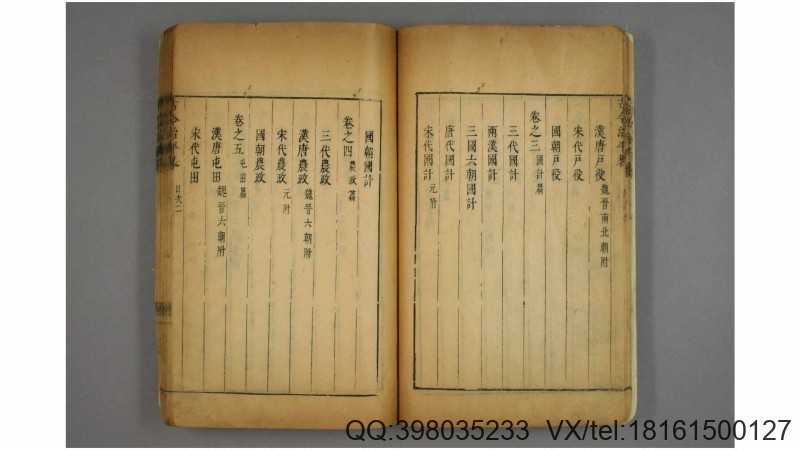 漢唐戸役 魏晉南北朝附
宋代戸役
國朝戸役
卷之三 國計篇
三代國計
兩漢國計
三國六朝國計
唐代國計
宋代國計 元附
國朝國計
卷之四 農政篇
三代農政
漢唐農政 魏晉六朝附
宋代農政 元附
國朝農政
卷之五 屯田篇
漢唐屯田 魏晉六朝附
宋代屯田
古今治平畧 目次二
QQ:398035233 VX/tel:18161500127